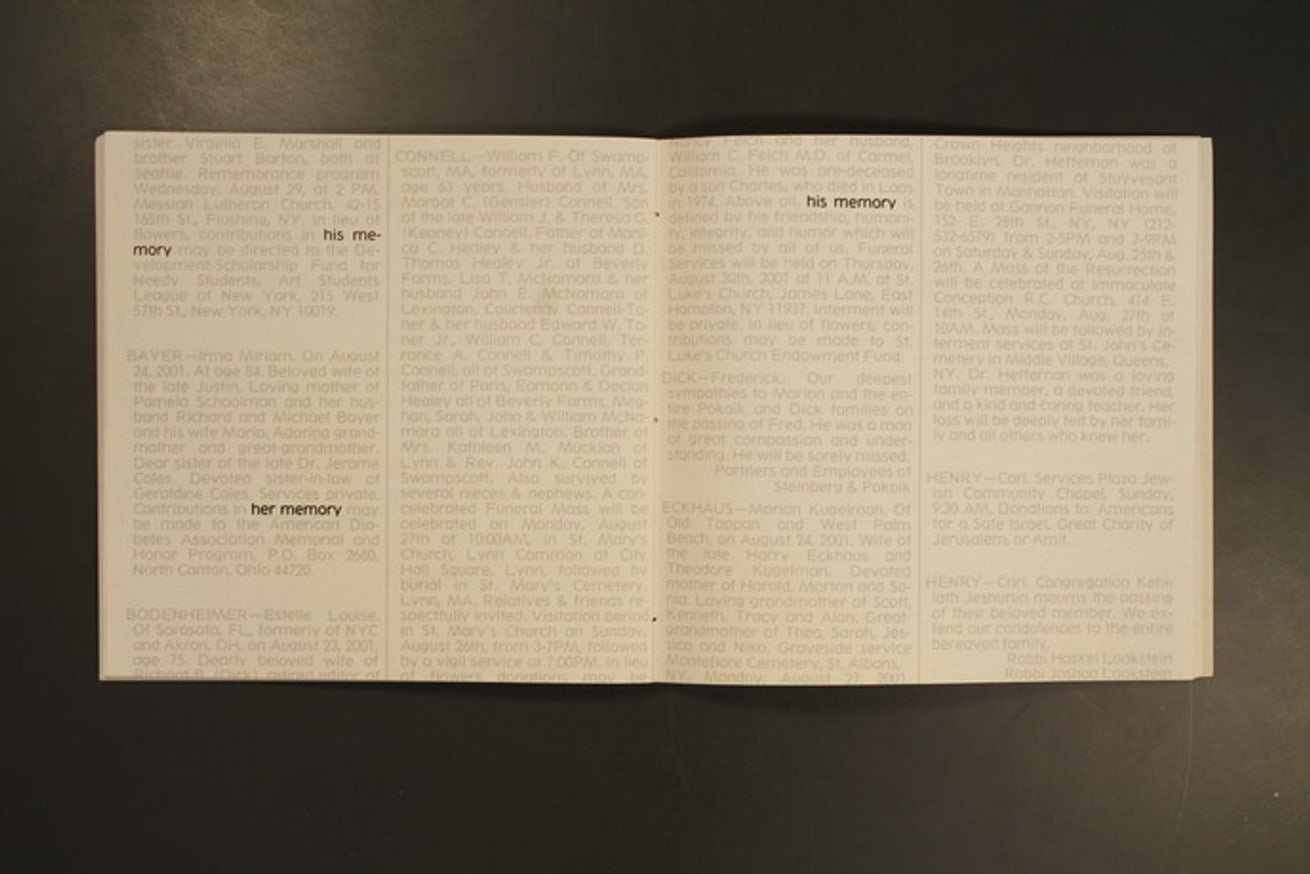 sister Virginia E. Marshall and
brother Stuart Barton, both of
Seattle. Remembrance program
Wednesday, August 29, at 2 PM,
Messiah Lutheran Church, 42-15
165th St., Flushing, NY. In lieu of
flowers, contributions in his me-
mory may be directed to the De-
velopment-Scholarship Fund for
Needy Students, Art Students
League of New York, 215 West
57th St., New York, NY 10019.
BAYER—Irma Miriam. On August
24, 2001. At age 84. Beloved wife of
the late Justin. Loving mother of
Pamela Schoolman and her hus-
band Richard and Michael Bayer
and his wife Maria. Adoring grand-
mother and great-grandmother.
Dear sister of the late Dr. Jerome
Coles. Devoted sister-in-law of
Geraldine Coles. Services private.
Contributions in her memory may
be made to the American Dia-
betes Association Memorial and
Honor Program, P.O. Box 2680,
North Canton, Ohio 44720.
BODENHEIMER—Estelle Louise.
Of Sarasota, FL, formerly of NYC
and Akron, OH, on August 23, 2001,
age 75. Dearly beloved wife of
Richard B. (Dick) retired editor of
CONNELL—William F. Of Swamp-
scott, MA, formerly of Lynn, MA,
age 63 years. Husband of Mrs.
Margot C. (Gensler) Connell. Son
of the late William J. & Theresa G.
(Keaney) Connell. Father of Moni-
ca C. Healey & her husband D.
Thomas Healey Jr. of Beverly
Farms, Lisa T. McNamara & her
husband John E. McNamara of
Lexington, Courtenay Connell-To-
ner & her husband Edward W. To-
ner Jr., William C. Connell, Ter-
rance A. Connell & Timothy P.
Connell, all of Swampscott. Grand-
father of Paris, Eamonn & Declan
Healey all of Beverly Farms, Meg-
han, Sarah, John & William McNa-
mara all of Lexington. Brother of
Mrs. Kathleen M. Mucklan of
Lynn & Rev. John K. Connell of
Swampscott. Also survived by
several nieces & nephews. A con-
celebrated Funeral Mass will be
celebrated on Monday, August
27th at 10:00AM, in St. Mary's
Church, Lynn Common at City
Hall Square, Lynn, followed by
burial in St. Mary's Cemetery,
Lynn, MA. Relatives & friends re-
spectfully invited. Visitation period
in St. Mary's Church on Sunday,
August 26th, from 3-7PM, followed
by a vigil service at 7:00PM. In lieu
of flowers donations may be
Nancy Felch and her husband,
William C. Felch M.D. of Carmel,
California. He was pre-deceased
by a son Charles, who died in Laos
in 1974. Above all, his memory is
defined by his friendship, humani-
ty, integrity, and humor which will
be missed by all of us. Funeral
Services will be held on Thursday,
August 30th, 2001 at 11 A.M. at St.
Luke's Church, James Lane, East
Hampton, NY 11937. Interment will
be private. In lieu of flowers, con-
tributions may be made to St.
Luke's Church Endowment Fund.
DICK—Frederick. Our deepest
sympathies to Marion and the en-
tire Pokoik and Dick families on
the passing of Fred. He was a man
of great compassion and under-
standing. He will be sorely missed.
Partners and Employees of
Steinberg & Pokoik
ECKHAUS—Marion Kugelman. Of
Old Tappan and West Palm
Beach, on August 24, 2001. Wife of
the late Harry Eckhaus and
Theodore Kugelman. Devoted
mother of Harold, Morton and So-
nia. Loving grandmother of Scott,
Kenneth, Tracy and Alan. Great-
grandmother of Thea, Sarah, Jes-
sica and Niko. Graveside service
Montefiore Cemetery, St. Albans,
NY, Monday, August 27, 2001
Crown Heights neighborhood of
Brooklyn. Dr. Heffernan was a
longtime resident of Stuyvesant
Town in Manhattan. Visitation will
be held at Gannon Funeral Home,
152 E. 28th St., NY, NY (212-
532-6579) from 2-5PM and 7-9PM
on Saturday & Sunday, Aug. 25th &
26th. A Mass of the Resurrection
will be celebrated at Immaculate
Conception R.C. Church, 414 E.
14th St., Monday, Aug. 27th at
10AM. Mass will be followed by in-
terment services at St. John's Ce-
metery in Middle Village, Queens,
NY. Dr. Heffernan was a loving
family member, a devoted friend,
and a kind and caring teacher. Her
loss will be deeply felt by her fami-
ly and all others who knew her.
HENRY—Carl. Services Plaza Jew-
ish Community Chapel, Sunday,
9:30 AM. Donations to: Americans
for a Safe Israel, Great Charity of
Jerusalem, or Amit.
HENRY—Carl. Congregation Kehi-
lath Jeshurun mourns the passing
of their beloved member. We ex-
tend our condolences to the entire
bereaved family.
Rabbi Haskel Lookstein
Rabbi Joshua Lookstein